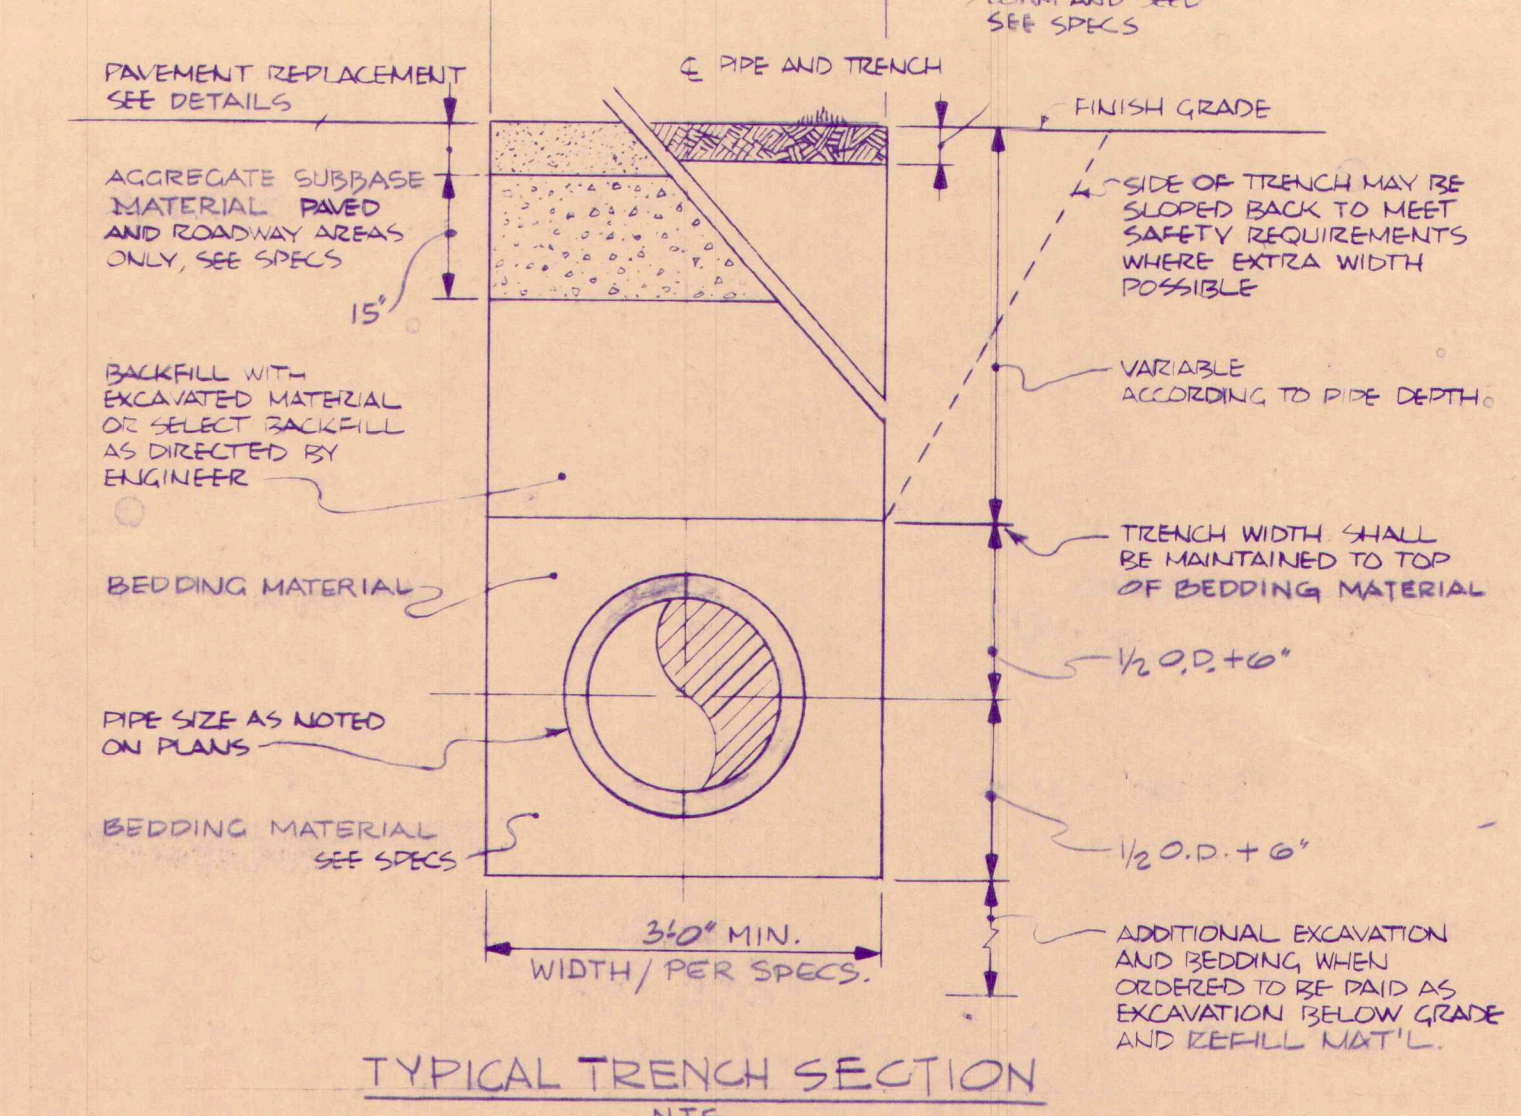 LOAM AND SEED
SEE SPECS
℄ PIPE AND TRENCH
PAVEMENT REPLACEMENT
SEE DETAILS
FINISH GRADE
AGGREGATE SUBBASE
MATERIAL PAVED
AND ROADWAY AREAS
ONLY, SEE SPECS
15"
SIDE OF TRENCH MAY BE
SLOPED BACK TO MEET
SAFETY REQUIREMENTS
WHERE EXTRA WIDTH
POSSIBLE
BACKFILL WITH
EXCAVATED MATERIAL
OR SELECT BACKFILL
AS DIRECTED BY
ENGINEER
VARIABLE
ACCORDING TO PIPE DEPTH.
TRENCH WIDTH SHALL
BE MAINTAINED TO TOP
OF BEDDING MATERIAL
BEDDING MATERIAL
1/2 O.D. + 6"
PIPE SIZE AS NOTED
ON PLANS
BEDDING MATERIAL
SEE SPECS
1/2 O.D. + 6"
3'-0" MIN.
WIDTH / PER SPECS.
ADDITIONAL EXCAVATION
AND BEDDING WHEN
ORDERED TO BE PAID AS
EXCAVATION BELOW GRADE
AND REFILL MAT'L.
TYPICAL TRENCH SECTION
NTS